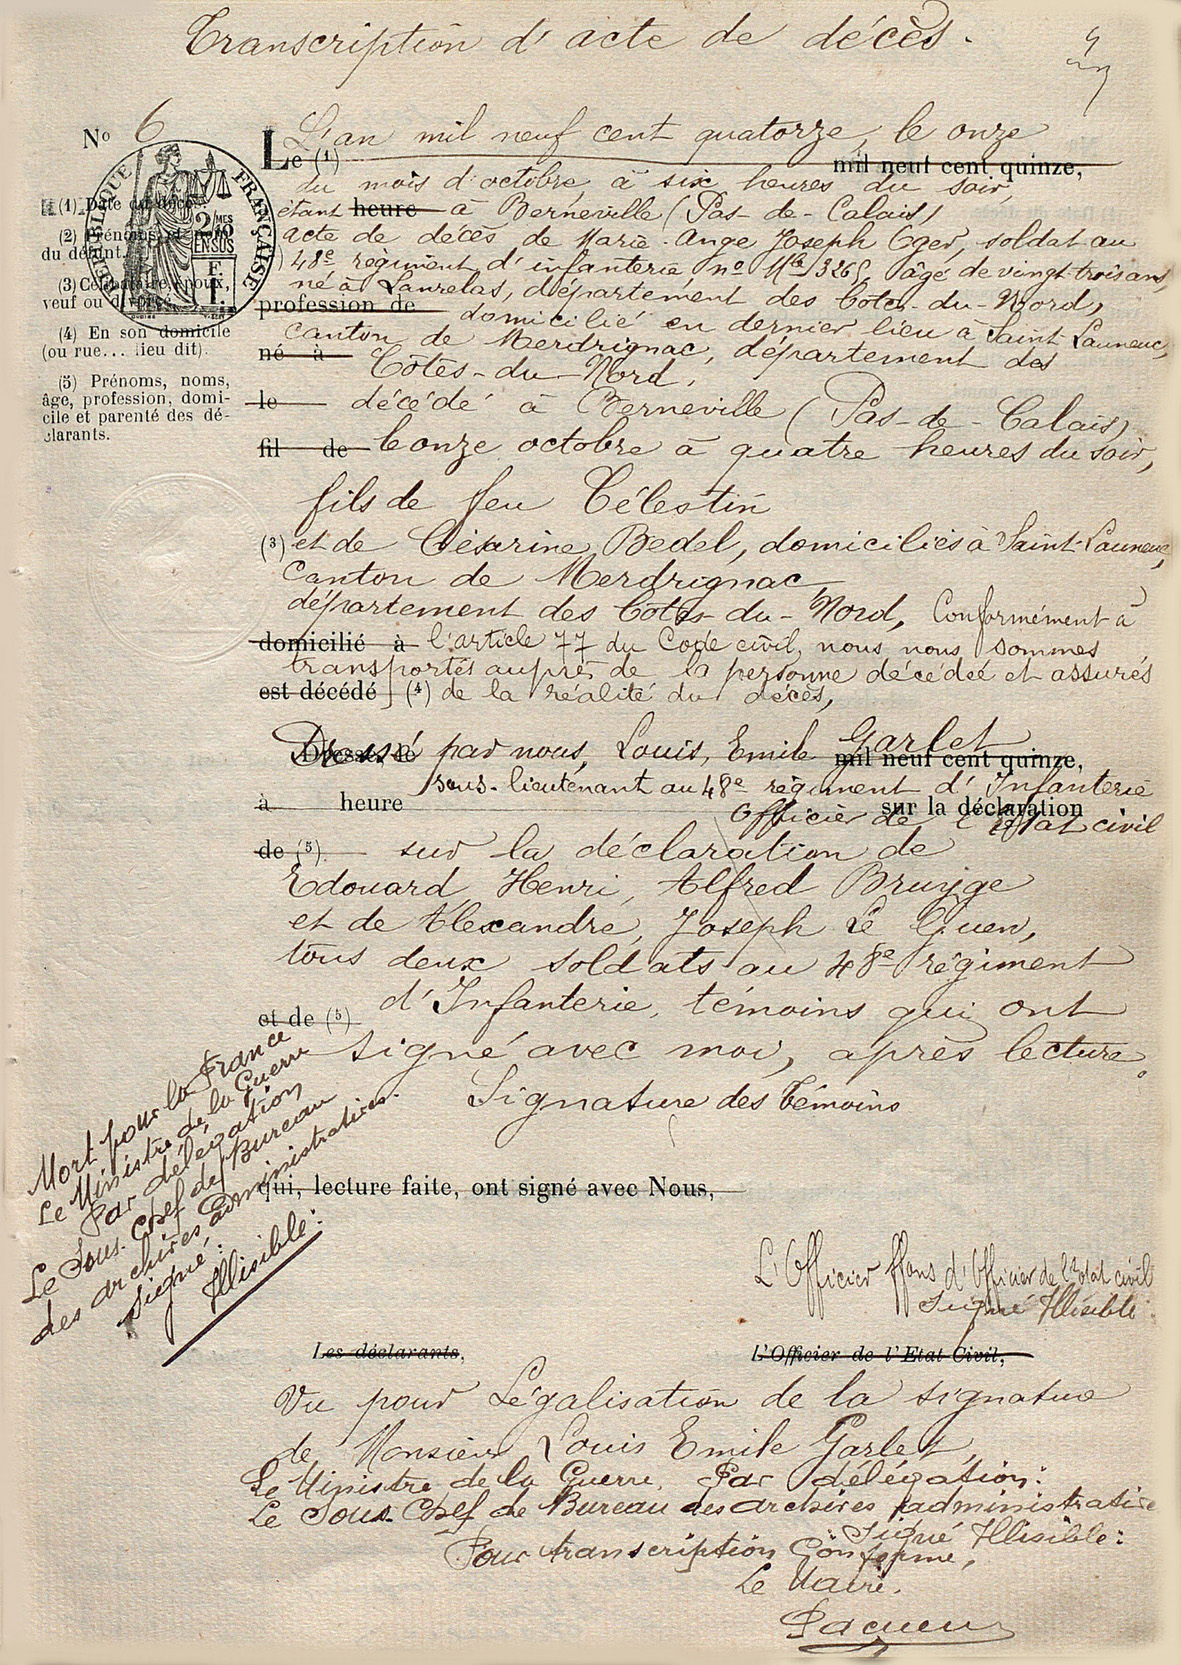 Transcription d'acte de décès.
No 6
RÉPUBLIQUE FRANÇAISE
2/10 MES EN SUS
L'an mil neuf cent quatorze, le onze
Le (1) mil neuf cent quinze,
du mois d'octobre, à six heures du soir,
étant heure à Berneville (Pas-de-Calais)
acte de décès de Marie-Ange Joseph Oger, soldat au
48e régiment d'infanterie no 3265, âgé de vingt trois ans,
né à Lanrelas, département des Côtes-du-Nord,
profession de domicilié en dernier lieu à Saint Launeuc,
canton de Merdrignac, département des
né à Côtes-du-Nord,
le décédé à Berneville (Pas-de-Calais)
fil de le onze octobre à quatre heures du soir,
fils de feu Célestin
(3) et de Césarine Bedel, domiciliés à Saint-Launeuc,
Canton de Merdrignac,
département des Côtes-du-Nord, Conformément à
domicilié à l'article 77 du Code civil, nous nous sommes
transportés auprès de la personne décédée et assurés
est décédé (4) de la réalité du décès,
Dressé par nous, Louis, Emile Garlet
Dressé, le mil neuf cent quinze,
sous-lieutenant au 48e régiment d'Infanterie
à heure sur la déclaration
Officier de l'Etat civil
de (5) sur la déclaration de
Edouard Henri, Alfred Bruyge
et de Alexandre, Joseph Le Guen,
tous deux soldats au 48e régiment
et de (5) d'Infanterie, témoins qui ont
signé avec moi, après lecture.
Signature des témoins
qui, lecture faite, ont signé avec Nous,
L'Officier ffons d'Officier de l'Etat civil
Signé Illisible
Les déclarants, L'Officier de l'Etat Civil,
Vu pour Légalisation de la signature
de Monsieur Louis Emile Garlet,
Le Ministre de la Guerre. Par délégation:
Le Sous-Chef de Bureau des archives administratives
Signé Illisible:
Pour transcription conforme,
Le Maire.
(1) Date du décès.
(2) Prénoms et nom
du défunt.
(3) Célibataire, époux,
veuf ou divorcé.
(4) En son domicile
(ou rue... lieu dit).
(5) Prénoms, noms,
âge, profession, domi-
cile et parenté des dé-
clarants.
Mort pour la France
Le Ministre de la Guerre
Par délégation
Le Sous-Chef de Bureau
des archives administratives.
Signé:
Illisible: